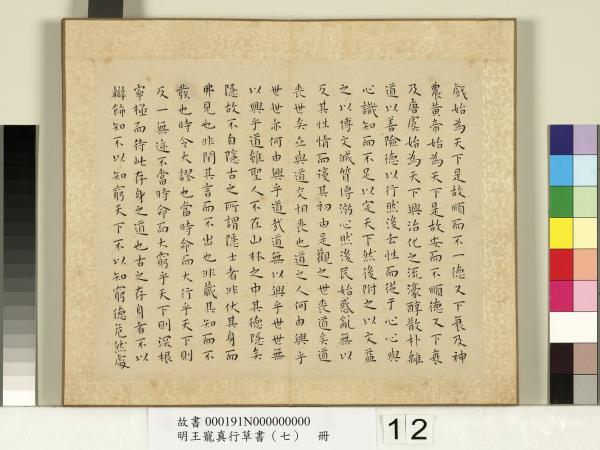 戲始為天下是故順而不一德又下衰及神
農黃帝始為天下是故安而不順德又下衰
及唐虞始為天下興治化之流濠醇散朴離
道以善險德以行然後去性而從于心心與
心識知而不足以定天下然後附之以文益
之以博文滅質博溺心然後民始惑亂無以
反其性情而復其初由是觀之世喪道矣道
喪世矣世與道交相喪也道之人何由興乎
世世亦何由興乎道哉道無以興乎世世無
以興乎道雖聖人不在山林之中其德隱矣
隱故不自隱古之所謂隱士者非伏其身而
弗見也非閉其言而不出也非藏其知而不
發也時命大謬也當時命而大行乎天下則
反一無迹不當時命而大窮乎天下則深根
寧極而待此存身之道也古之存身者不以
辯飾知不以知窮天下不以知窮德危然處
故書 000191N000000000
明王寵真行草書（七） 冊
12